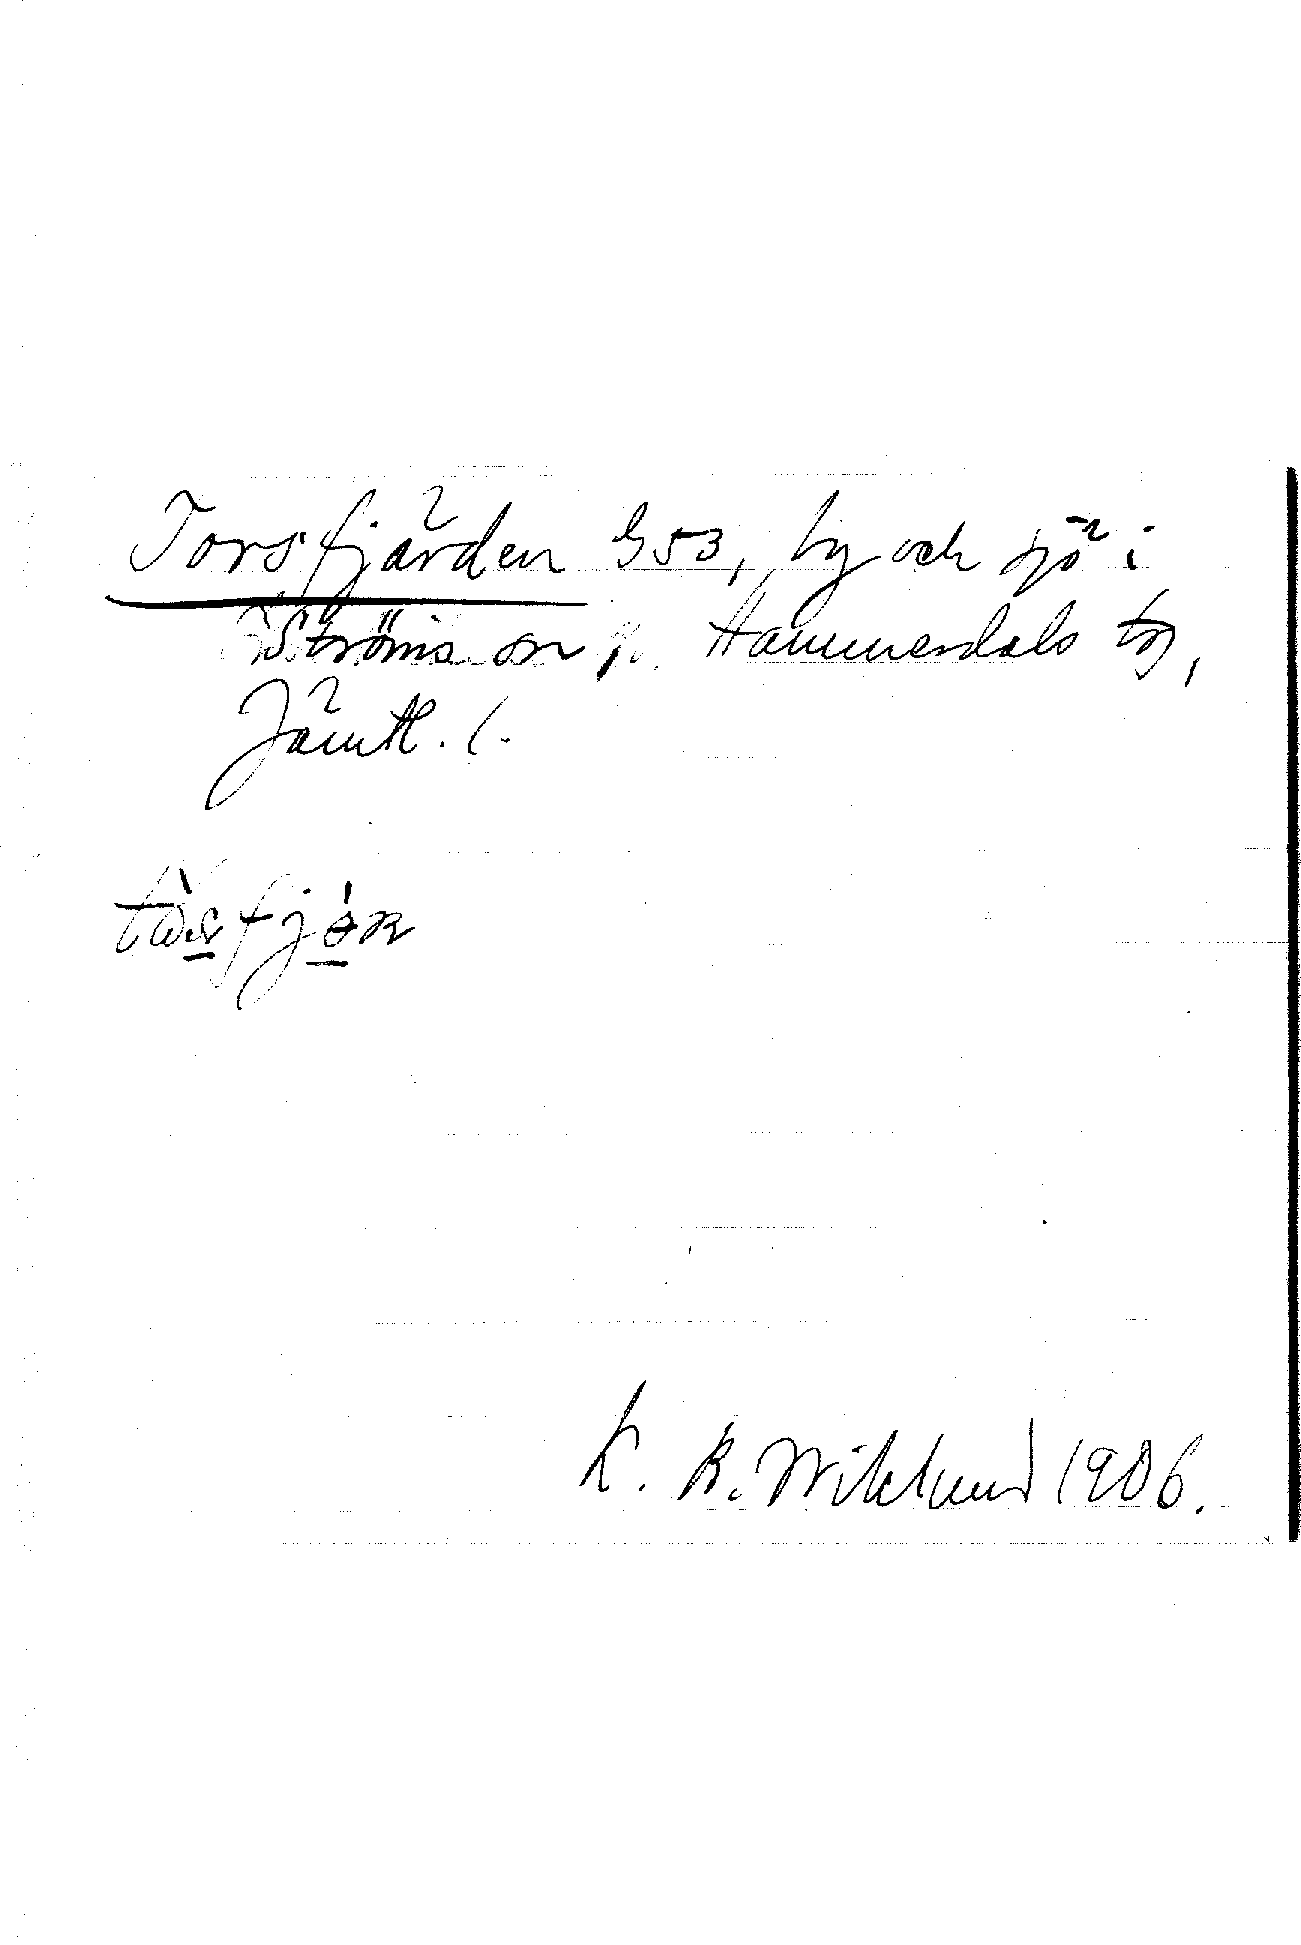 Torsfjärden G53, by och sjö i
Ströms sn, Hammerdals tg,
Jämtl. l.
K. B. Wiklund 1906.